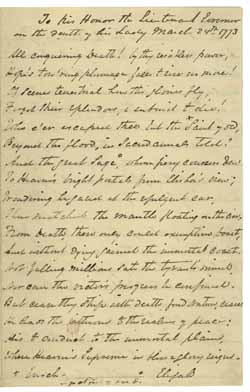 To his Honor the Lieutenant Governor
on the death of his Lady March 24th 1773
All conquering Death! by thy resistless power,
Hope's tow'ring plumage falls to rise no more!
Of scenes terrestrial how the glories fly,
Forget their splendors, & submit to die!
Who e'er escaped thee but the * Saint of old
Beyond the flood, in Sacred annals told,
And the great Sage whom fiery coursers drew
To Heaven's bright portals from Elisha's view;
Wondering he gazed at the refulgent car,
Then snatch'd the mantle floating on the air.
From Death these only could exemption boast,
And without dying gained the immortal coast.
Not falling millions sate the tyrant's mind,
Nor can the victor's progress be confined.
But cease thy strife with death, fond Nature, cease
He leads the virtuous to the realms of peace;
His to conduct to the immortal plains,
Where Heaven's Supreme in bliss & glory reigns.
* Enoch Elijah